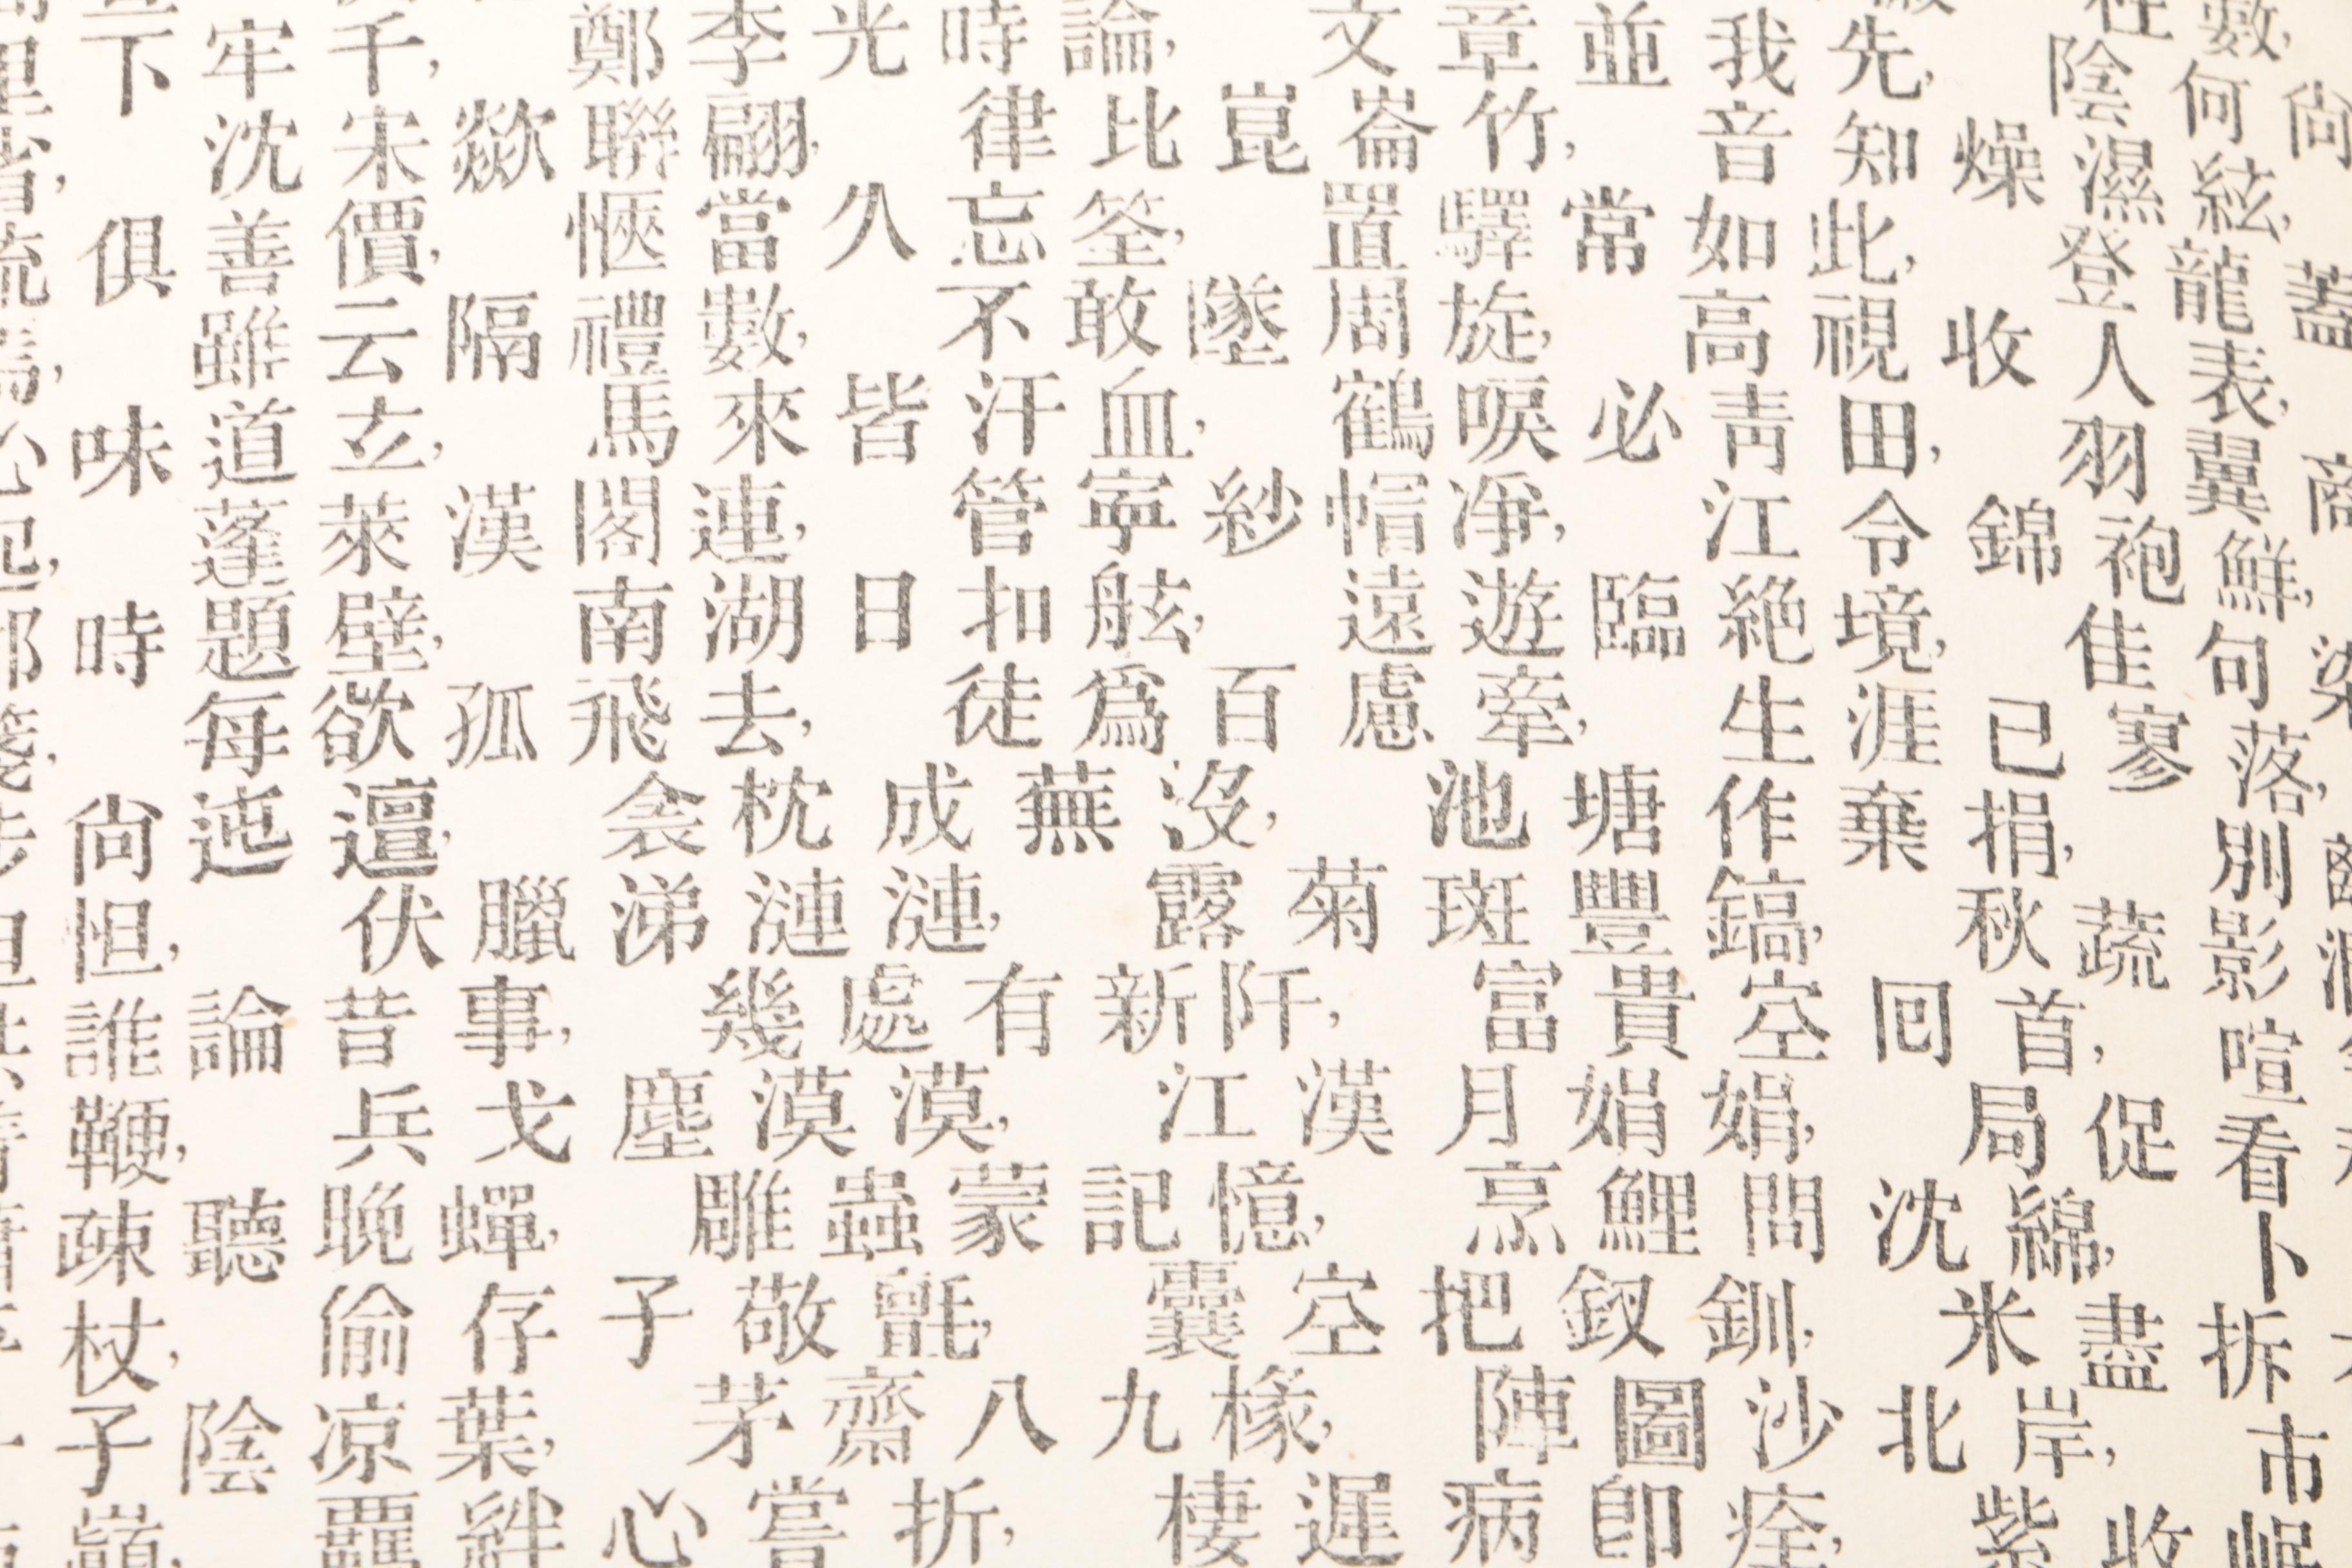 下牢千,鄭李光時論,文章並我先,陰何尙
省,沈宋欻聯翩,律比崑崙竹,音知燥濕絃,
流俱善價,愜當久忘筌,置驛常如此,登龍蓋
焉,雖云隔禮數,不敢墜周旋,高視收人表,
心味道玄,馬來皆汗血,鶴唳必靑田,羽翼商
起,蓬萊漢閣連,管寧紗帽淨,江令錦袍鮮,
郡時題壁,南湖日扣舷,遠遊臨絕境,佳句染
箋,每欲孤飛去,徒爲百慮牽,生涯已寥落,
步尙迍邅,衾枕成蕪沒,池塘作棄捐,別離
怛怛,伏臘涕漣漣,露菊斑豐鎬,秋蔬影澗
共誰論昔事,幾處有新阡,富貴空囘首,喧
鞭,兵戈塵漠漠,江漢月娟娟,局促看
疎聽晚蟬,雕蟲蒙記憶,烹鯉問沈綿,卜
杖,偷存子敬氈,囊空把釵釧,米盡拆
子陰凉葉,茅齋八九椽,陣圖沙北岸,市
巔,羈絆心嘗折,棲遲病卽痊,紫收岷